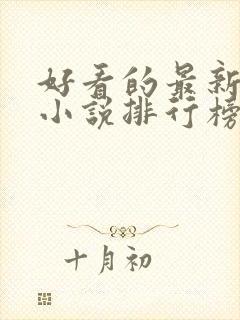 好看的最新
小说排行榜
十月初